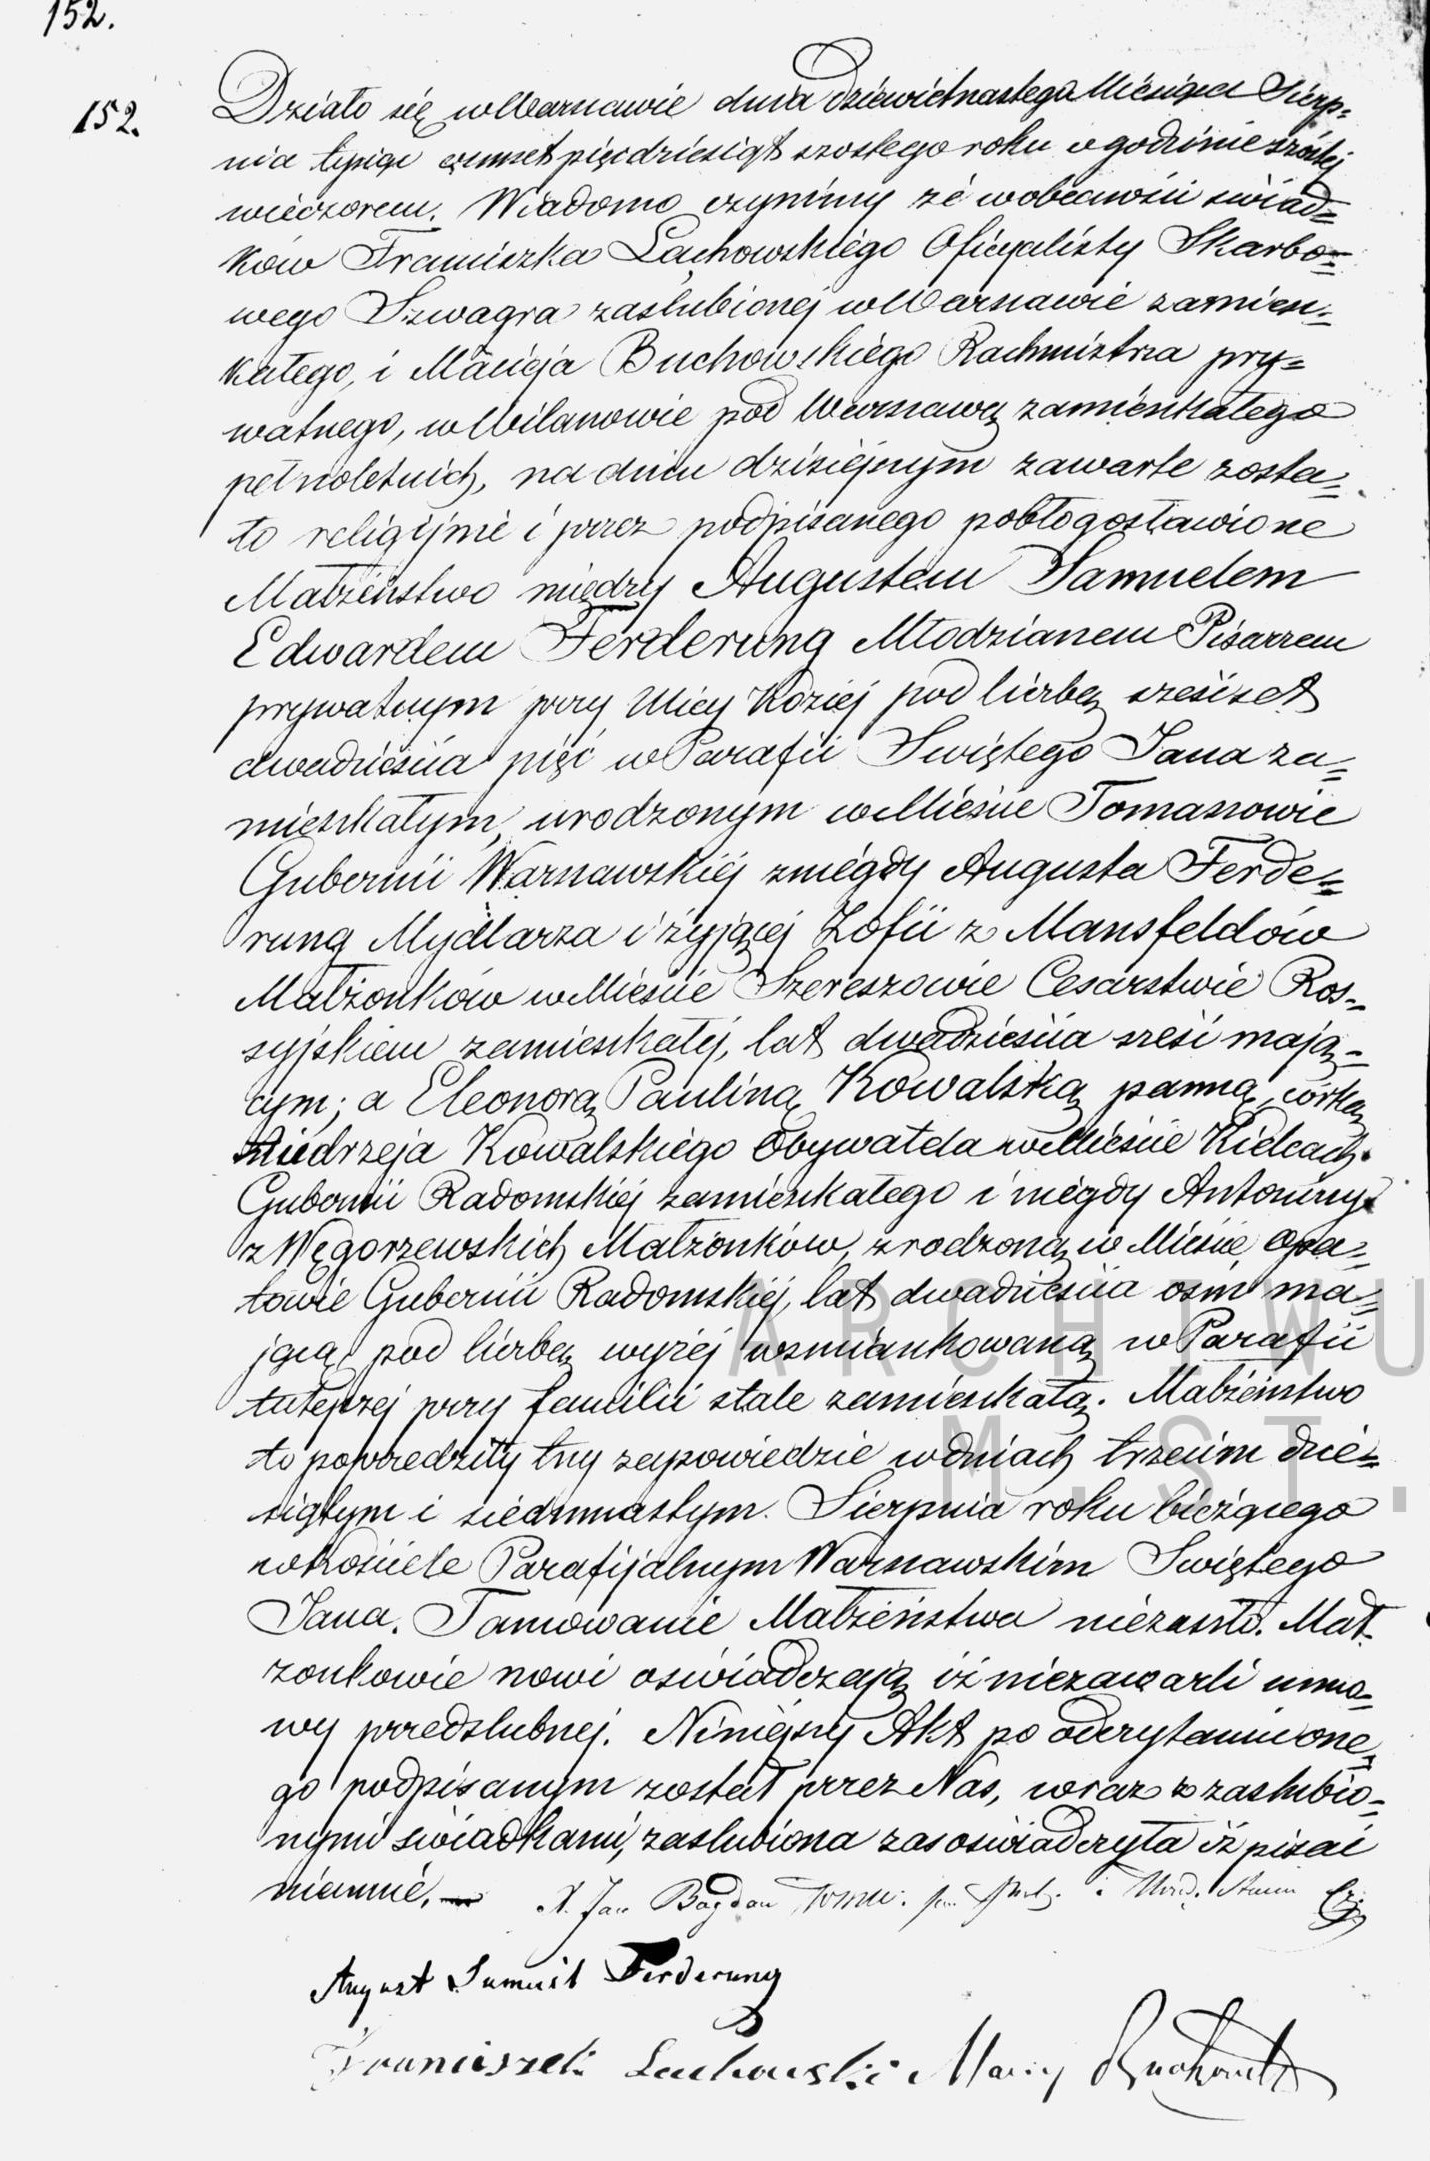 152.
152.
Działo się w Warszawie dnia dziewiętnastego Miesiąca Sierp=
nia tysiąc ośmset pięćdziesiąt szóstego roku o godzinie szóstej
wieczorem. Wiadomo czynimy że w obecności świad=
ków Franciszka Lachowskiego Oficyalisty Skarbo=
wego Szwagra zaślubionej w Warszawie zamiesz=
kałego, i Macieja Buchowskiego Rachmistrza pry=
watnego, w Wilanowie pod Warszawą zamieszkałego
pełnoletnich, na dniu dzisiejszym zawarte zosta=
ło religijnie i przez podpisanego pobłogosławione
Małżeństwo między Augustem Samuelem
Edwardem Ferderung Młodzianem Pisarzem
prywatnym przy Ulicy Koziej pod liczbą sześćset
dwadzieścia pięć w Parafii Swiętego Jana za=
mieszkałym, urodzonym w Mieście Tomaszowie
Gubernii Warszawskiej z niegdy Augusta Ferde=
rung Mydlarza i żyjącej Zofii z Mansfeldów
Małżonków w Mieście Szereszowie Cesarstwie Ros=
syjskiem zamieszkałej, lat dwadzieścia sześć mają=
cym; a Eleonorą Pauliną Kowalską panną, córką
Andrzeja Kowalskiego Obywatela w Mieście Kielcach
Gubernii Radomskiej zamieszkałego i niegdy Antoniny
z Węgorzewskich Małżonków, zrodzoną w Mieście Opa=
towie Gubernii Radomskiej, lat dwadzieścia ośm ma=
jącą pod liczbą wyżej wzmiankowaną w Parafii
tutejszej przy familii stale zamieszkałą. Małżeństwo
to poprzedziły trzy zapowiedzie w dniach trzecim dzie=
siątym i siedmnastym Sierpnia roku bieżącego
w Kościele Parafijalnym Warszawskim Swiętego
Jana. Tamowanie Małżeństwa niezaszło. Mał=
żonkowie nowi oświadczają iż niezawarli umo=
wy przedślubnej. Niniejszy Akt po odczytaniu one=
go podpisanym został przez Nas, wraz z zaślubio=
nymi świadkami, zaślubiona zaś oświadczyła iż pisać
nieumie.
X. Jan Bogdan
August Samuel Ferderung
Franciszek Lachowski Maciej Buchowski
ARCHIWU
M.ST.